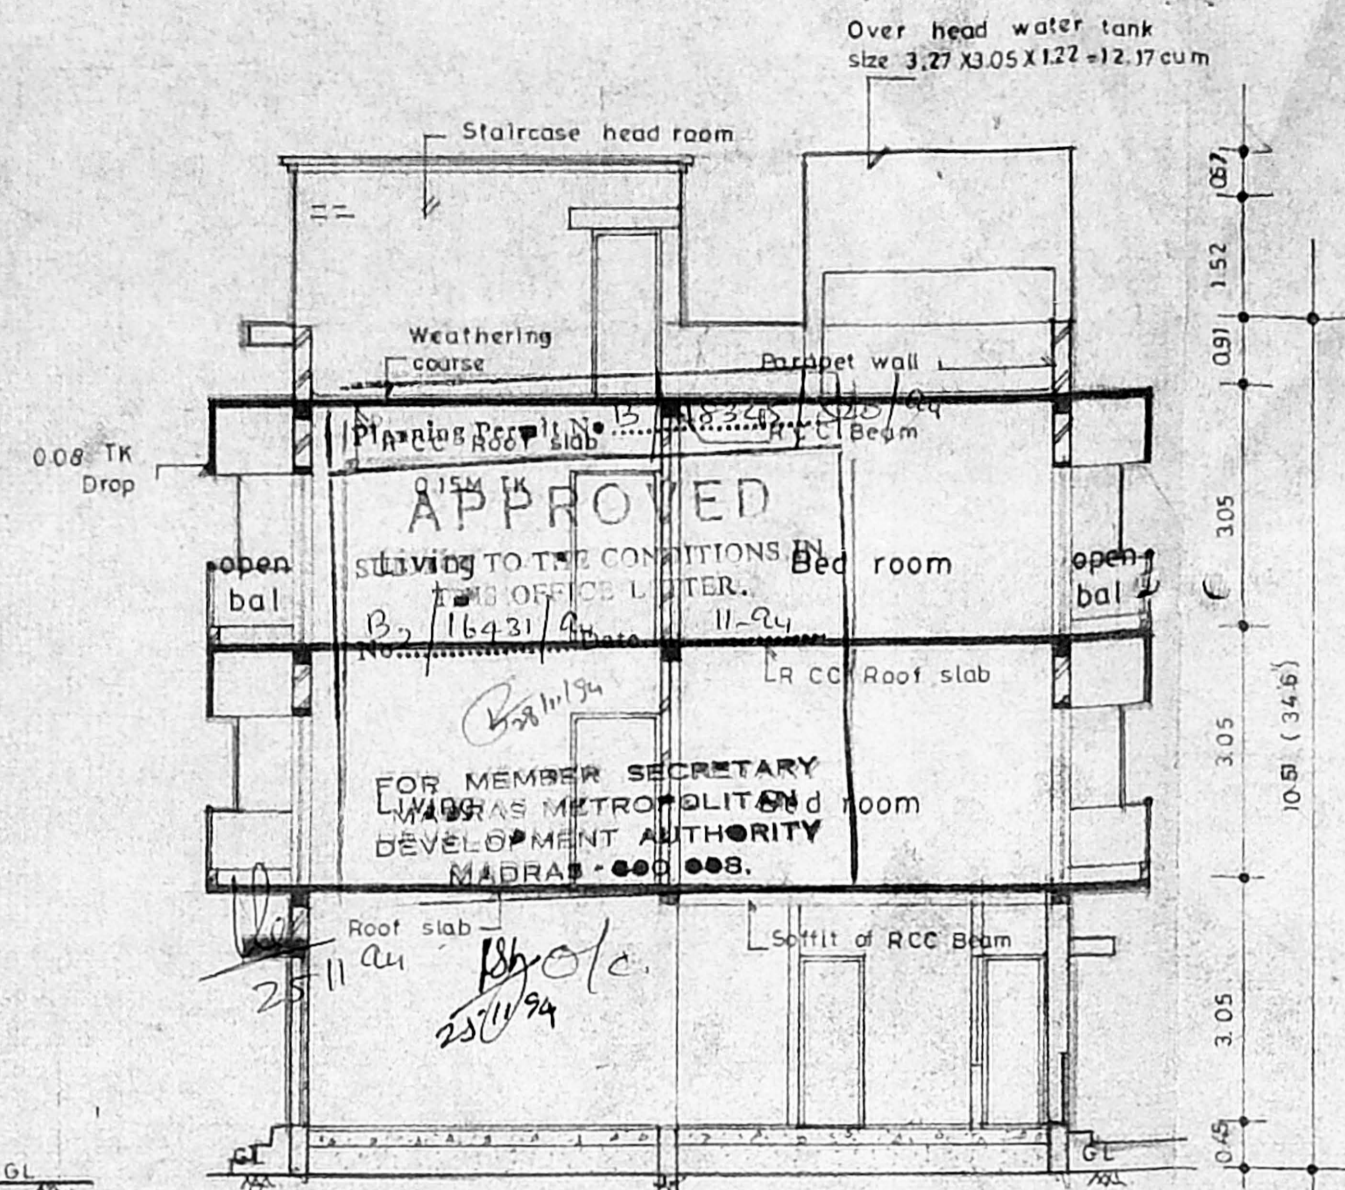 Over head water tank
size 3.27 X3.05 X 1.22 =12.17 cum
Staircase head room
Weathering
course
Parapet wall
Planning Permit No
RCC Roof slab
RCC Beam
0.08 TK
Drop
0.15M TK
APPROVED
TO THE CONDITIONS IN
THIS OFFICE LETTER.
Living
Bed room
open
bal
open
bal
No B2/16431/94 Date 11-94
RCC Roof slab
28/11/94
FOR MEMBER SECRETARY
MADRAS METROPOLITAN
DEVELOPMENT AUTHORITY
MADRAS - 600 008.
Living
Bed room
Roof slab
Soffit of RCC Beam
25 11 94
O/c.
25/11/94
GL
GL
GL
0.67
1.52
0.91
3.05
3.05
3.05
0.45
10.51 (34'6")